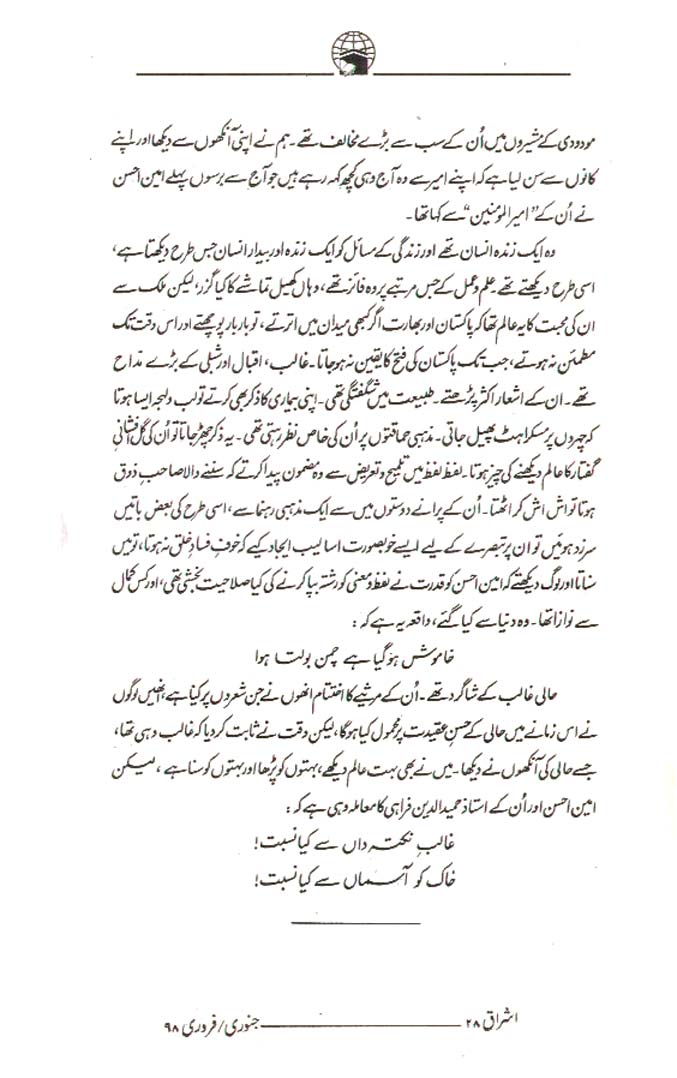 مودودی کے مشیروں میں اُن کے سب سے بڑے مخالف تھے۔ ہم نے اپنی آنکھوں سے دیکھا اور اپنے
کانوں سے سن لیا ہے کہ اپنے امیر سے وہ آج وہی کچھ کہہ رہے ہیں جو آج سے برسوں پہلے امین احسن
نے اُن کے ”امیر المؤمنین“ سے کہا تھا۔
وہ ایک زندہ انسان تھے اور زندگی کے مسائل کو ایک زندہ اور بیدار انسان جس طرح دیکھتا ہے،
اسی طرح دیکھتے تھے۔ علم و عمل کے جس مرتبے پر وہ فائز تھے، وہاں کھیل تماشے کا کیا گزر، لیکن ملک سے
ان کی محبت کا یہ عالم تھا کہ پاکستان اور بھارت اگر کبھی میدان میں اترتے، تو بار بار پوچھتے اور اس وقت تک
مطمئن نہ ہوتے، جب تک پاکستان کی فتح کا یقین نہ ہو جاتا۔ غالب، اقبال اور شبلی کے بڑے مداح
تھے۔ ان کے اشعار اکثر پڑھتے۔ طبیعت میں شگفتگی تھی۔ اپنی بیماری کا ذکر بھی کرتے تو لب و لہجہ ایسا ہوتا
کہ چہروں پر مسکراہٹ پھیل جاتی۔ مذہبی حماقتوں پر اُن کی خاص نظر رہتی تھی۔ یہ ذکر چھڑ جاتا تو اُن کی گل افشانیِ
گفتار کا عالم دیکھنے کی چیز ہوتا۔ لفظ لفظ میں تلمیح و تعریض سے وہ مضمون پیدا کرتے کہ سننے والا صاحبِ ذوق
ہوتا تو اش اش کر اٹھتا۔ اُن کے پرانے دوستوں میں سے ایک مذہبی رہنما سے، اسی طرح کی بعض باتیں
سرزد ہوئیں تو ان پر تبصرے کے لیے ایسے خوبصورت اسالیب ایجاد کیے کہ خوفِ فسادِ خلق نہ ہوتا، تو میں
سناتا اور لوگ دیکھتے کہ امین احسن کو قدرت نے لفظ و معنی کو رشتہ بپا کرنے کی کیا صلاحیت بخشی تھی، اور کس کمال
سے نوازا تھا۔ وہ دنیا سے کیا گئے، واقعہ یہ ہے کہ:
خاموش ہو گیا ہے چمن بولتا ہوا
حالی غالب کے شاگرد تھے۔ اُن کے مرثیے کا اختتام انھوں نے جن شعروں پر کیا ہے، انھیں لوگوں
نے اس زمانے میں حالی کے حسنِ عقیدت پر محمول کیا ہوگا، لیکن وقت نے ثابت کر دیا کہ غالب وہی تھا،
جسے حالی کی آنکھوں نے دیکھا۔ میں نے بھی بہت عالم دیکھے، بہتوں کو پڑھا اور بہتوں کو سنا ہے، لیکن
امین احسن اور اُن کے استاذ حمید الدین فراہی کا معاملہ وہی ہے کہ:
غالبِ نکتہ داں سے کیا نسبت!
خاک کو آسماں سے کیا نسبت!
اشراق ۲۸ جنوری/فروری ۹۸